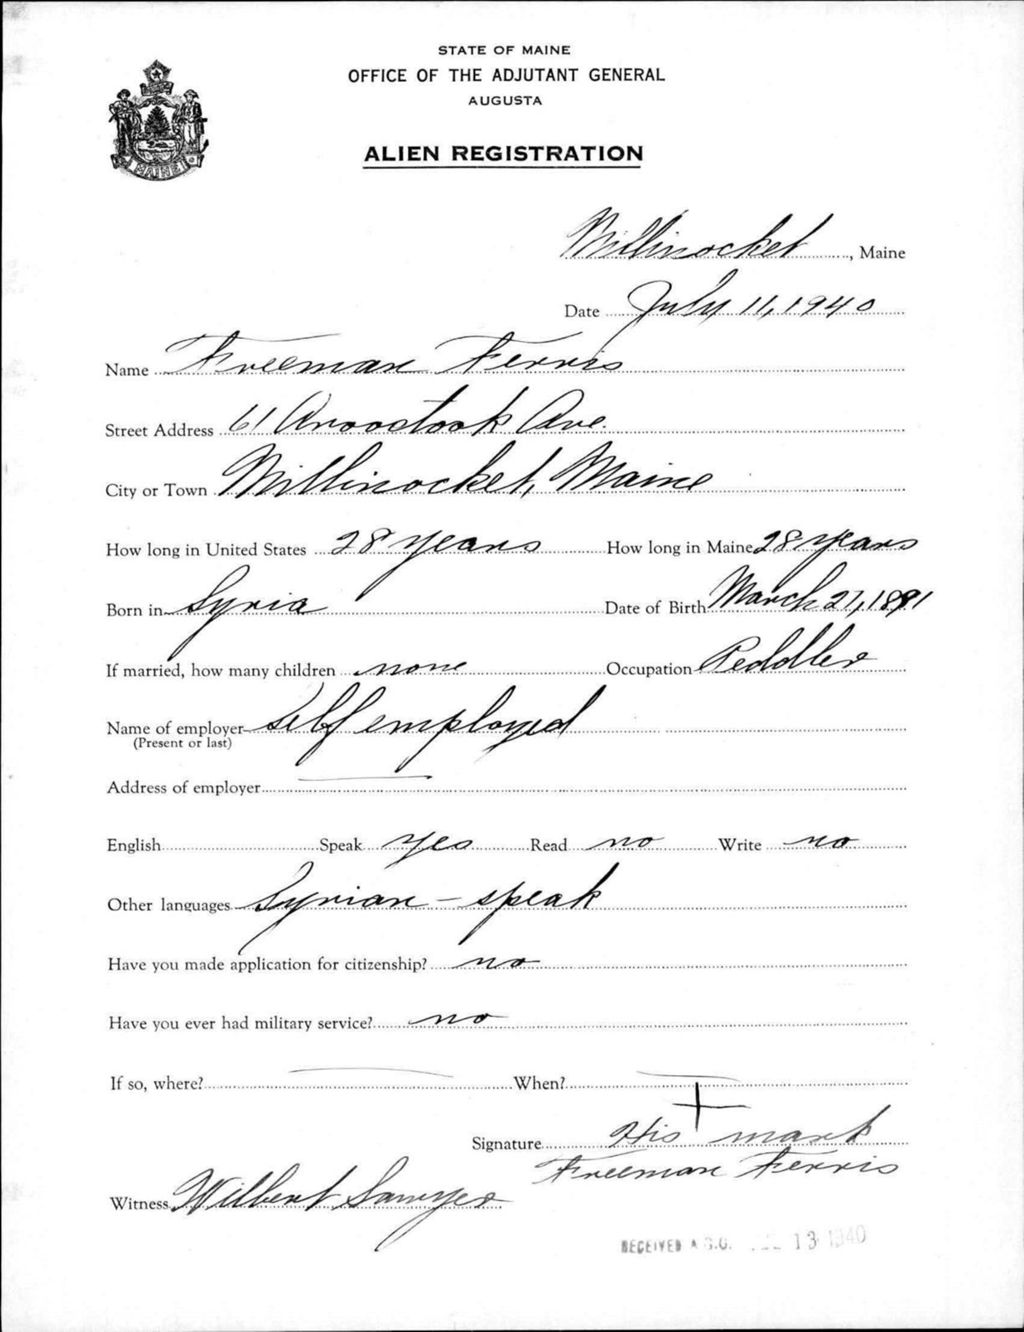 STATE OF MAINE
OFFICE OF THE ADJUTANT GENERAL
AUGUSTA
ALIEN REGISTRATION
MAINE
Millinocket, Maine
Date July 11, 1940
Name Freeman Ferris
Street Address 61 Aroostook Ave.
City or Town Millinocket, Maine
How long in United States 28 years How long in Maine 28 years
Born in Syria Date of Birth March 27, 1891
If married, how many children none Occupation Peddler
Name of employer Self employed
(Present or last)
Address of employer
English Speak yes Read no Write no
Other languages Syrian - speak
Have you made application for citizenship? no
Have you ever had military service? no
If so, where? When?
Signature His + mark
Freeman Ferris
Witness Wilbert Sawyer
RECEIVED A.G.O. 13 1940